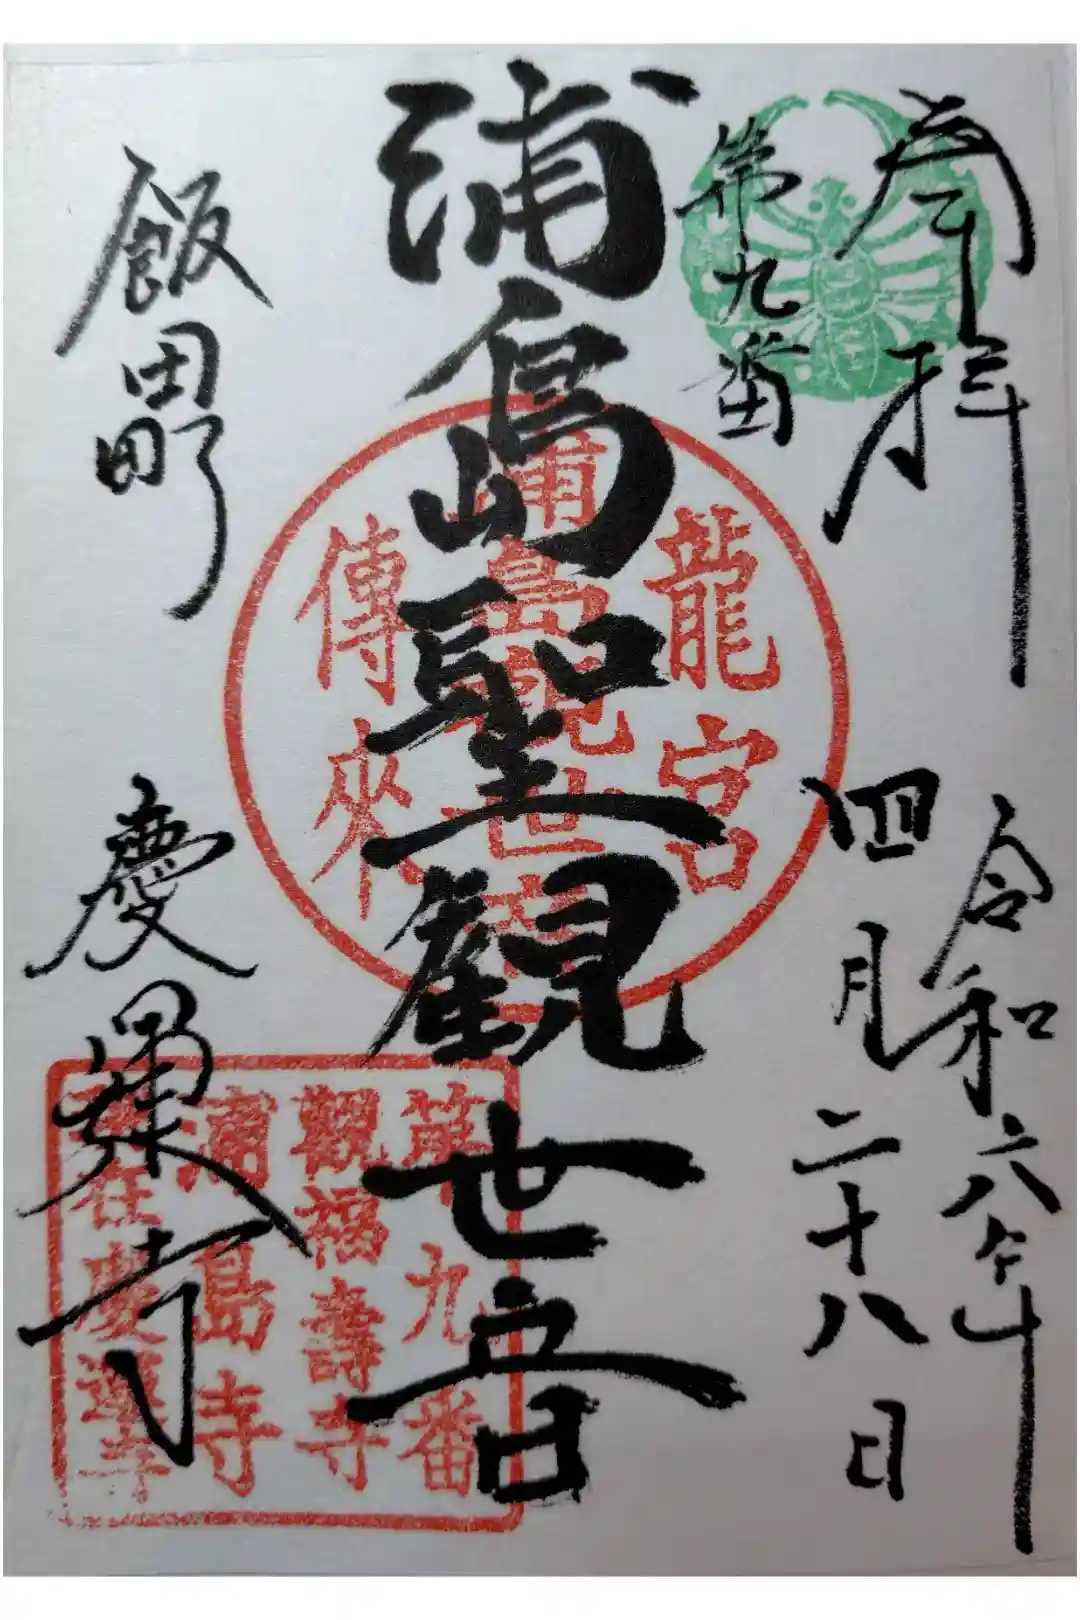 奉拝
第九番
令和六年
四月二十八日
浦島聖観世音
飯田町
慶運寺
龍宮
浦島観世音
傳來
第九番
觀福壽寺
浦島寺
在慶運寺